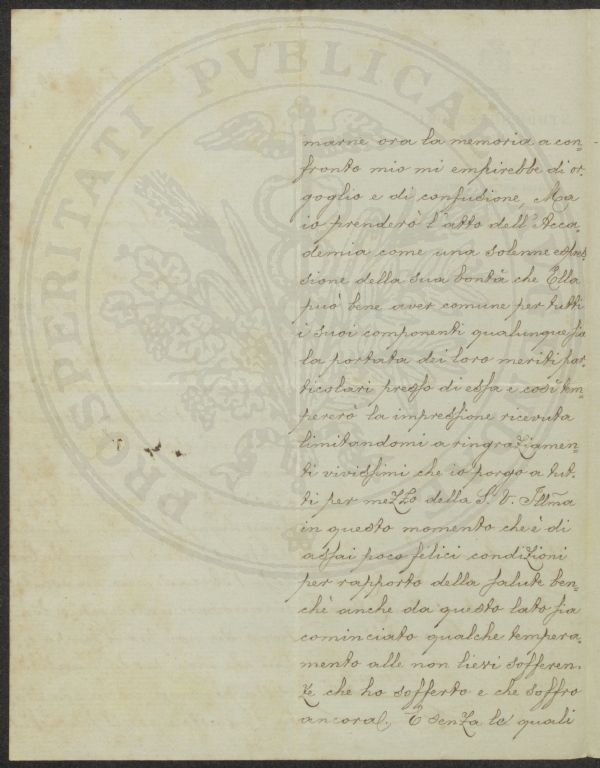 PROSPERITATI PVBLICAE
marne ora la memoria a con=
fronto mio mi empirebbe di or=
goglio e di confusione, Ma
io prenderò l'atto dell'Acca=
demia come una solenne espres
sione della sua bontà che Ella
può bene aver comune per tutti
i suoi componenti qualunque sia
la portata dei loro meriti par=
ticolari presso di essa e così tem=
pererò la impressione ricevuta
limitandomi a ringraziamen=
ti vivissimi che io porgo a tut=
ti per mezzo della S. V. Illma
in questo momento che è di
assai poco felici condizioni
per rapporto della salute ben=
chè anche da questo lato sia
cominciato qualche tempera=
mento alle non lievi sofferen=
ze che ho sofferto e che soffro
ancora. E senza le quali